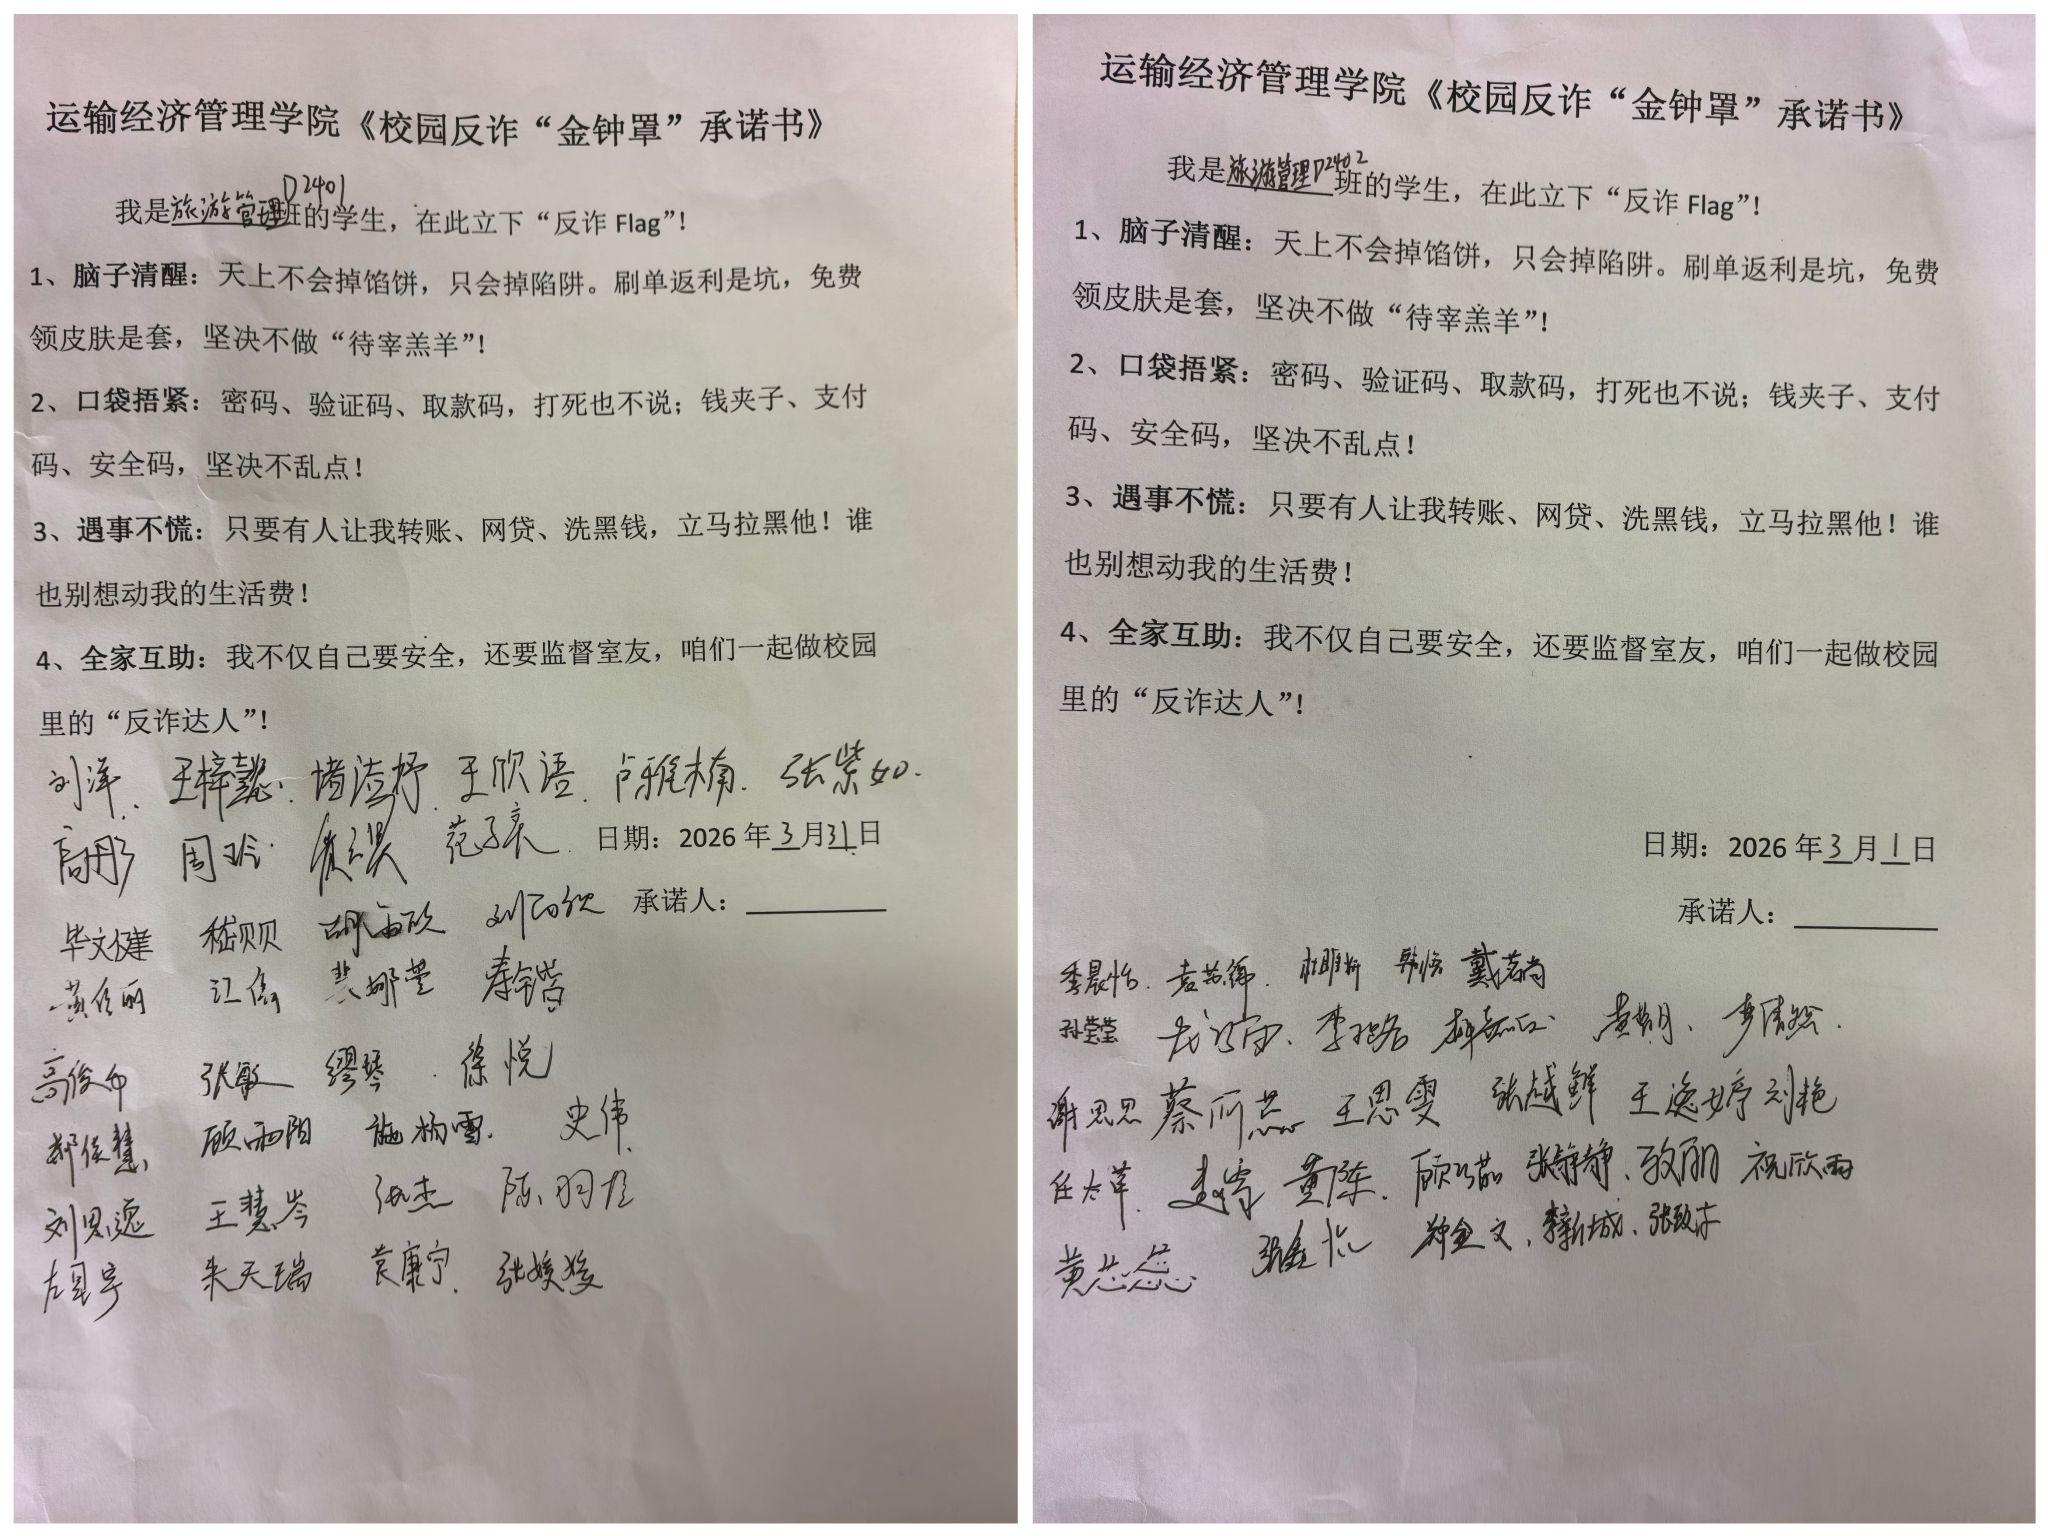 运输经济管理学院《校园反诈“金钟罩”承诺书》
我是旅游管理D2401班的学生，在此立下“反诈 Flag”！
1、脑子清醒：天上不会掉馅饼，只会掉陷阱。刷单返利是坑，免费
领皮肤是套，坚决不做“待宰羔羊”！
2、口袋捂紧：密码、验证码、取款码，打死也不说；钱夹子、支付
码、安全码，坚决不乱点！
3、遇事不慌：只要有人让我转账、网贷、洗黑钱，立马拉黑他！谁
也别想动我的生活费！
4、全家互助：我不仅自己要安全，还要监督室友，咱们一起做校园
里的“反诈达人”！
刘洋. 王梓懿. 王欣语. 卢雅楠. 张紫如.
高彤 周玲. 日期：2026 年 3 月 31 日
毕文健 嵇贝贝 承诺人：
黄佳丽 江倩
高俊 张敏 缪琴. 徐悦
郑俊慧 顾雨阳 施杨雪. 史伟.
刘思逸 王慧岑 张杰 陈羽
朱天瑞 袁康宁. 张媛媛
运输经济管理学院《校园反诈“金钟罩”承诺书》
我是旅游管理D2402班的学生，在此立下“反诈 Flag”！
1、脑子清醒：天上不会掉馅饼，只会掉陷阱。刷单返利是坑，免费
领皮肤是套，坚决不做“待宰羔羊”！
2、口袋捂紧：密码、验证码、取款码，打死也不说；钱夹子、支付
码、安全码，坚决不乱点！
3、遇事不慌：只要有人让我转账、网贷、洗黑钱，立马拉黑他！谁
也别想动我的生活费！
4、全家互助：我不仅自己要安全，还要监督室友，咱们一起做校园
里的“反诈达人”！
日期：2026 年 3 月 1 日
承诺人：
季晨怡.
孙莹莹
谢思思 王思雯 张越鲜 王逸婷 刘艳
黄陈. 张静静. 祝欣雨
黄芯蕊.